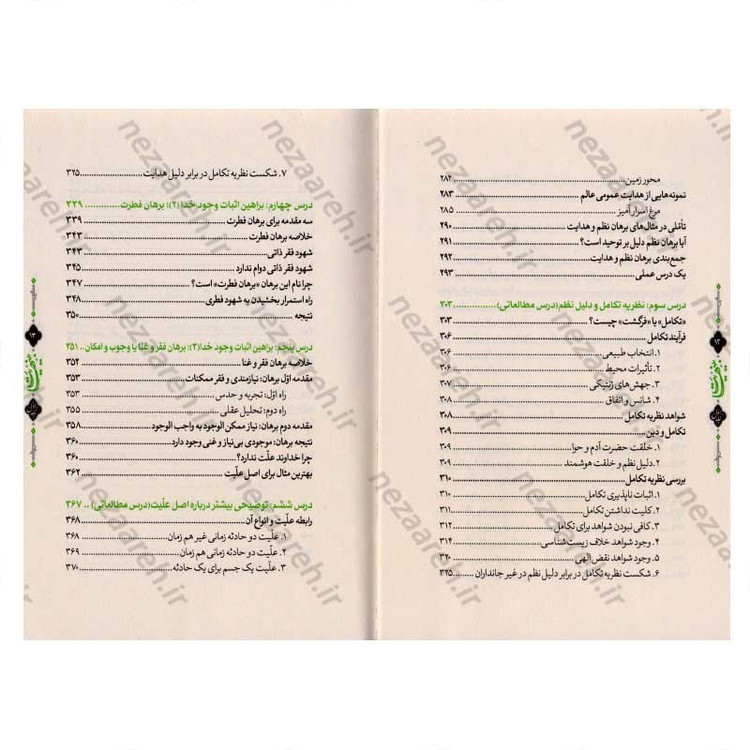 محور زمین ۲۸۲
نمونه‌هایی از هدایت عمومی عالم ۲۸۳
مرغ اسرارآمیز ۲۸۵
تأملی در مثال‌های برهان نظم و هدایت ۲۹۰
آیا برهان نظم دلیل بر توحید است؟ ۲۹۱
جمع‌بندی برهان نظم و هدایت ۲۹۲
یک درس عملی ۲۹۳
درس سوم: نظریه تکامل و دلیل نظم(درس مطالعاتی) ۳۰۳
«تکامل» یا «فرگشت» چیست؟ ۳۰۳
فرآیند تکامل ۳۰۶
۱. انتخاب طبیعی ۳۰۶
۲. تأثیرات محیط ۳۰۶
۳. جهش‌های ژنتیکی ۳۰۷
۴. شانس و اتفاق ۳۰۸
شواهد نظریه تکامل ۳۰۸
تکامل و دین ۳۰۹
۱. خلقت حضرت آدم و حوا ۳۰۹
۲. دلیل نظم و خلقت هوشمند ۳۰۹
بررسی نظریه تکامل ۳۱۰
۱. اثبات ناپذیری تکامل ۳۱۰
۲. کلیت نداشتن تکامل ۳۱۱
۳. کافی نبودن شواهد برای تکامل ۳۱۲
۴. وجود شواهد خلاف زیست‌شناسی ۳۱۴
۵. وجود شواهد نقض الهی ۳۲۰
۶. شکست نظریه تکامل در برابر دلیل نظم در غیر جانداران ۳۲۵
۱۲
۷. شکست نظریه تکامل در برابر دلیل هدایت ۳۲۵
درس چهارم: براهین اثبات وجود خدا(۲): برهان فطرت ۳۳۹
سه مقدمه برای برهان فطرت ۳۳۹
خلاصه برهان فطرت ۳۴۳
شهود فقر ذاتی ۳۴۳
شهود فقر ذاتی دوام ندارد ۳۴۵
چرا نام این برهان «برهان فطرت» است؟ ۳۴۷
راه استمرار بخشیدن به شهود فطری ۳۴۸
نتیجه ۳۵۰
درس پنجم: براهین اثبات وجود خدا(۳): برهان فقر و غنا یا وجوب و امکان ۳۵۱
خلاصه برهان فقر و غنا ۳۵۲
مقدمه اوّل برهان: نیازمندی و فقر ممکنات ۳۵۳
راه اوّل: تجربه و حدس ۳۵۳
راه دوم: تحلیل عقلی ۳۵۵
مقدمه دوم برهان: نیاز ممکن الوجود به واجب الوجود ۳۵۸
نتیجه برهان: موجودی بی‌نیاز و غنی وجود دارد ۳۶۰
چرا خداوند علّت ندارد؟ ۳۶۰
بهترین مثال برای اصل علّیت ۳۶۲
درس ششم: توضیحی بیشتر درباره اصل علّیت(درس مطالعاتی) ۳۶۷
رابطه علّیت و انواع آن ۳۶۸
۱. علّیت دو حادثه زمانی غیر هم زمان ۳۶۸
۲. علّیت دو حادثه زمانی هم زمان ۳۶۹
۳. علّیت یک جسم برای یک حادثه ۳۷۰
۱۳
nezaareh.ir